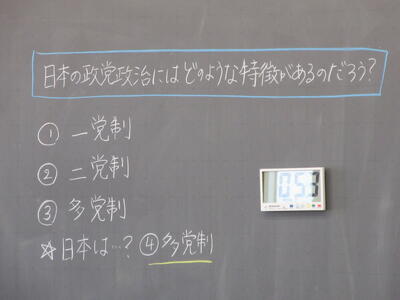 日本の政党政治にはどのような特徴があるのだろう?
① 一党制
② 二党制
③ 多党制
☆日本は…? ④多党制